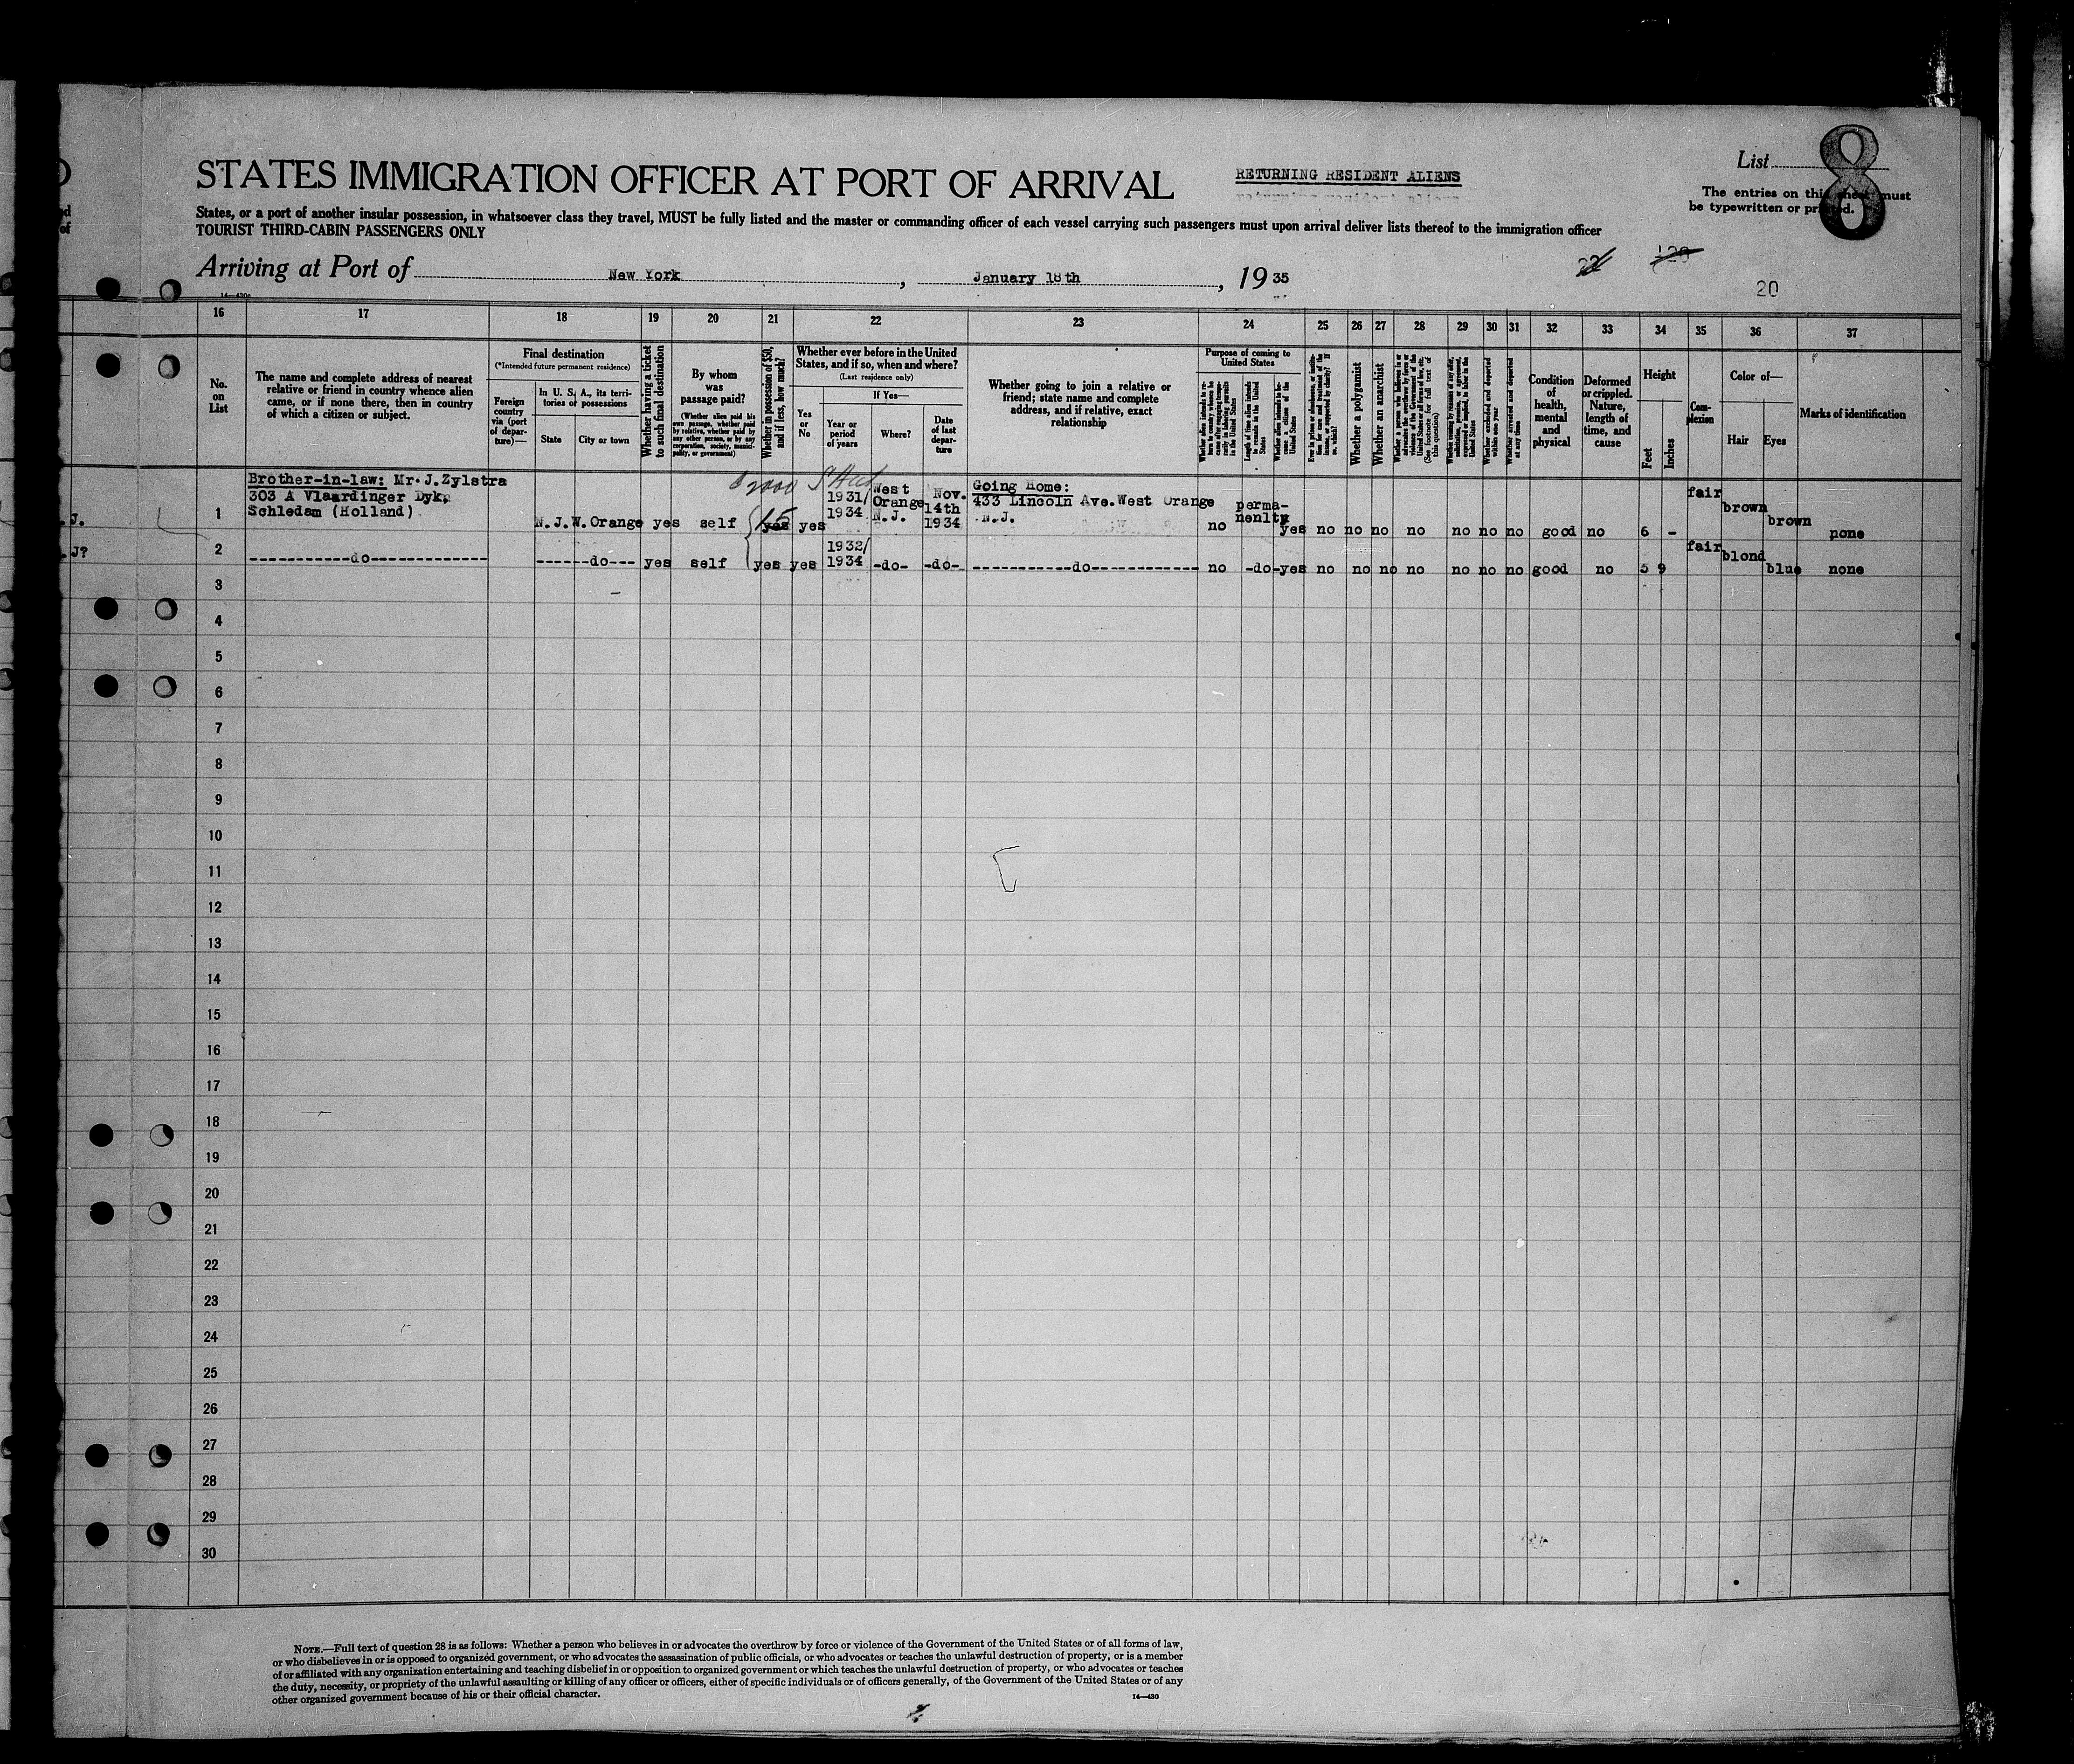 STATES IMMIGRATION OFFICER AT PORT OF ARRIVAL
RETURNING RESIDENT ALIENS
List
8
The entries on this sheet must
be typewritten or printed.
States, or a port of another insular possession, in whatsoever class they travel, MUST be fully listed and the master or commanding officer of each vessel carrying such passengers must upon arrival deliver lists thereof to the immigration officer
TOURIST THIRD-CABIN PASSENGERS ONLY
Arriving at Port of New York, January 18th, 1935
20
16 17 18 19 20 21 22 23 24 25 26 27 28 29 30 31 32 33 34 35 36 37
No. on List
The name and complete address of nearest
relative or friend in country whence alien
came, or if none there, then in country
of which a citizen or subject.
Final destination
(*Intended future permanent residence)
Foreign
country
via (port
of depar-
ture)—
In U. S. A., its terri-
tories or possessions
State
City or town
Whether having a ticket
to such final destination
By whom
was
passage paid?
(Whether alien paid his
own passage, whether paid
by relative, whether paid by
any other person, or by any
corporation, society, munici-
pality, or government)
Whether in possession of $50,
and if less, how much?
Whether ever before in the United
States, and if so, when and where?
(Last residence only)
Yes
or
No
If Yes—
Year or
period
of years
Where?
Date
of last
depar-
ture
Whether going to join a relative or
friend; state name and complete
address, and if relative, exact
relationship
Purpose of coming to
United States
Whether a polygamist
Whether an anarchist
Condition
of
health,
mental
and
physical
Deformed
or crippled.
Nature,
length of
time, and
cause
Height
Feet
Inches
Com-
plexion
Color of—
Hair
Eyes
Marks of identification
Brother-in-law: Mr. J. Zylstra
303 A Vlaardinger Dyk,
Schledam (Holland)
1 N.J. W. Orange yes self 15 yes yes 1931/ 1934 West Orange N.J. Nov. 14th 1934
Going Home:
433 Lincoln Ave. West Orange
N.J.
no perma-
nenlty yes no no no no no no no good no 6 - fair brown brown none
2 do do yes self yes yes 1932/ 1934 -do- -do- do no -do- yes no no no no no no no good no 5 9 fair blond blue none
3
4
5
6
7
8
9
10
11
12
13
14
15
16
17
18
19
20
21
22
23
24
25
26
27
28
29
30
NOTE.—Full text of question 28 is as follows: Whether a person who believes in or advocates the overthrow by force or violence of the Government of the United States or of all forms of law,
or who disbelieves in or is opposed to organized government, or who advocates the assassination of public officials, or who advocates or teaches the unlawful destruction of property, or is a member
of or affiliated with any organization entertaining and teaching disbelief in or opposition to organized government or which teaches the unlawful destruction of property, or who advocates or teaches
the duty, necessity, or propriety of the unlawful assaulting or killing of any officer or officers, either of specific individuals or of officers generally, of the Government of the United States or of any
other organized government because of his or their official character.
14—430